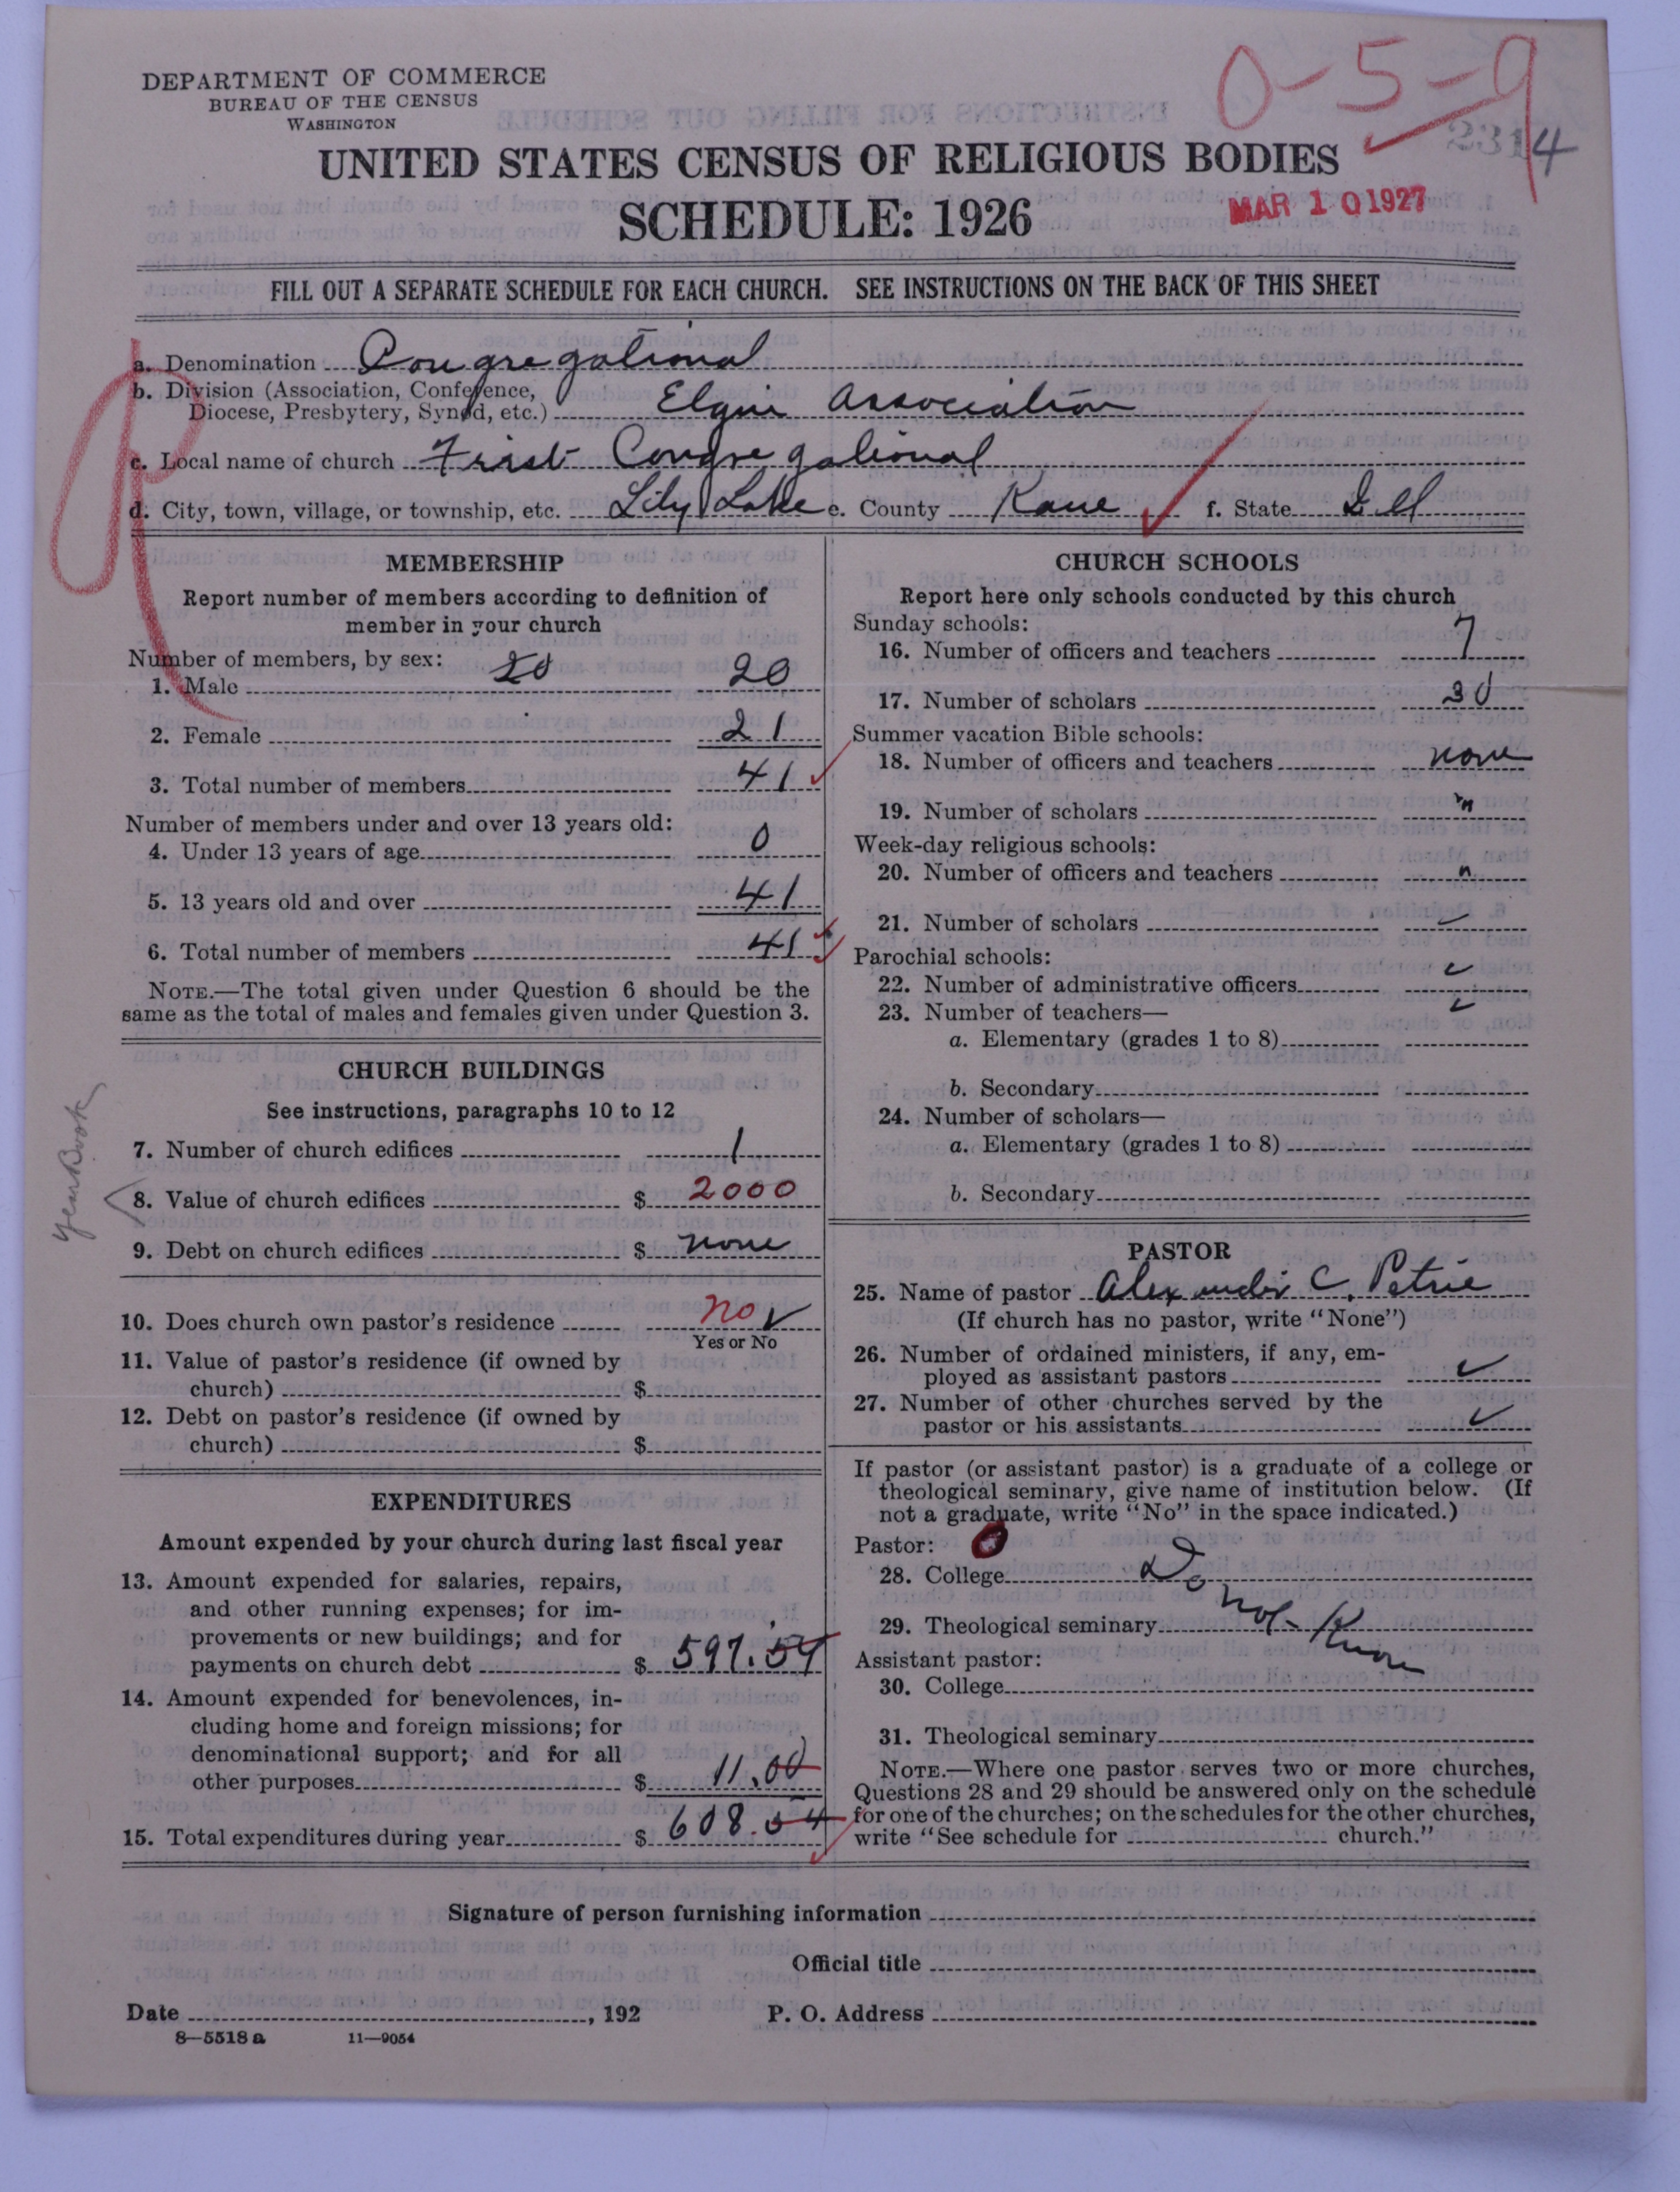 DEPARTMENT OF COMMERCE
BUREAU OF THE CENSUS
WASHINGTON
0-5-9
2314
UNITED STATES CENSUS OF RELIGIOUS BODIES
SCHEDULE: 1926
MAR 10 1927
FILL OUT A SEPARATE SCHEDULE FOR EACH CHURCH. SEE INSTRUCTIONS ON THE BACK OF THIS SHEET
a. Denomination Congregational
b. Division (Association, Conference,
Diocese, Presbytery, Synod, etc.) Elgin Association
c. Local name of church First Congregational
d. City, town, village, or township, etc. Lily Lake e. County Kane f. State Ill
MEMBERSHIP
Report number of members according to definition of
member in your church
Number of members, by sex: 20
1. Male 20
2. Female 21
3. Total number of members 41
Number of members under and over 13 years old:
4. Under 13 years of age 0
5. 13 years old and over 41
6. Total number of members 41
NOTE.—The total given under Question 6 should be the
same as the total of males and females given under Question 3.
CHURCH BUILDINGS
See instructions, paragraphs 10 to 12
7. Number of church edifices 1
Year Book
8. Value of church edifices $ 2000
9. Debt on church edifices $ none
10. Does church own pastor's residence no
Yes or No
11. Value of pastor's residence (if owned by
church) $
12. Debt on pastor's residence (if owned by
church) $
EXPENDITURES
Amount expended by your church during last fiscal year
13. Amount expended for salaries, repairs,
and other running expenses; for im-
provements or new buildings; and for
payments on church debt $ 597.54
14. Amount expended for benevolences, in-
cluding home and foreign missions; for
denominational support; and for all
other purposes $ 11.00
15. Total expenditures during year $ 608.54
CHURCH SCHOOLS
Report here only schools conducted by this church
Sunday schools:
16. Number of officers and teachers 7
17. Number of scholars 30
Summer vacation Bible schools:
18. Number of officers and teachers none
19. Number of scholars "
Week-day religious schools:
20. Number of officers and teachers "
21. Number of scholars ✓
Parochial schools:
22. Number of administrative officers ✓
23. Number of teachers— ✓
a. Elementary (grades 1 to 8)
b. Secondary
24. Number of scholars—
a. Elementary (grades 1 to 8)
b. Secondary
PASTOR
25. Name of pastor Alexander C. Petrie
(If church has no pastor, write "None")
26. Number of ordained ministers, if any, em-
ployed as assistant pastors ✓
27. Number of other churches served by the
pastor or his assistants ✓
If pastor (or assistant pastor) is a graduate of a college or
theological seminary, give name of institution below. (If
not a graduate, write "No" in the space indicated.)
Pastor:
28. College Do
29. Theological seminary not Know
Assistant pastor:
30. College
31. Theological seminary
NOTE.—Where one pastor serves two or more churches,
Questions 28 and 29 should be answered only on the schedule
for one of the churches; on the schedules for the other churches,
write "See schedule for church."
Signature of person furnishing information
Official title
Date , 192 P. O. Address
8—5518 a 11—9054